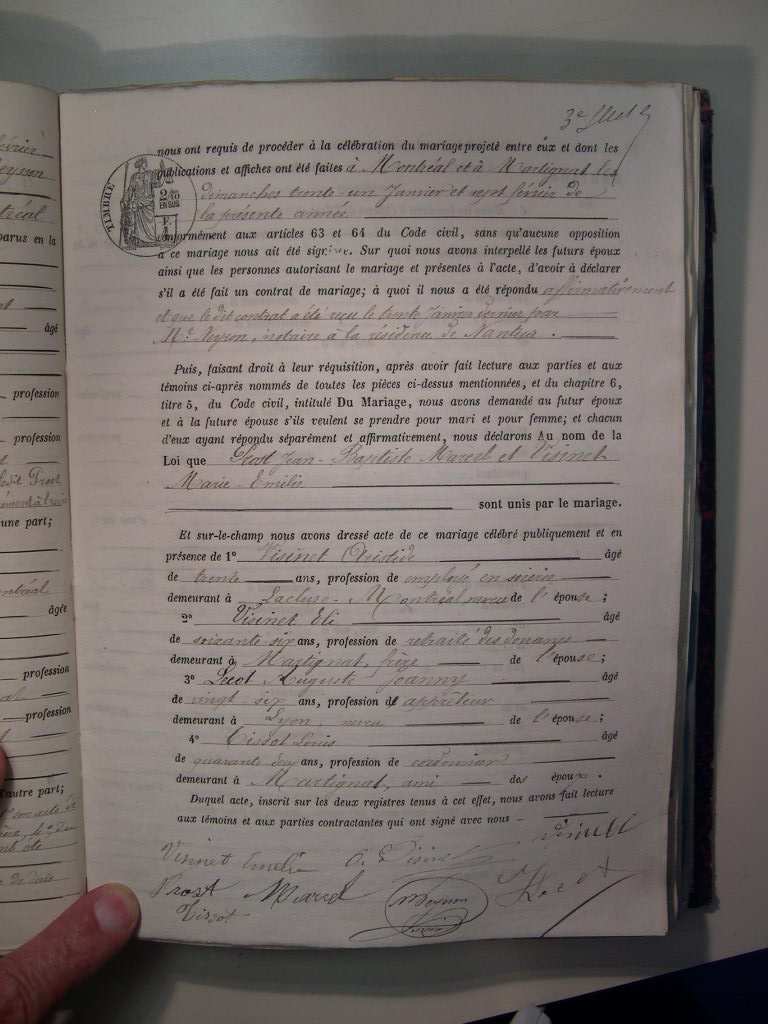 évrier
eyron
tréal
parus en la
âgé
profession
profession
ledit Prost
une part;
ontréal
âgée
profession
profession
d'autre part;
3e
nous ont requis de procéder à la célébration du mariage projeté entre eux et dont les
publications et affiches ont été faites à Montréal et à Martignat les
dimanches trente-un Janvier et sept février de
la présente année
TIMBRE
conformément aux articles 63 et 64 du Code civil, sans qu'aucune opposition
à ce mariage nous ait été signifiée. Sur quoi nous avons interpellé les futurs époux
ainsi que les personnes autorisant le mariage et présentes à l'acte, d'avoir à déclarer
s'il a été fait un contrat de mariage; à quoi il nous a été répondu affirmativement
et que le dit contrat a été reçu le trente Janvier dernier par
Me Neyron, notaire à la résidence de Nantua.
Puis, faisant droit à leur réquisition, après avoir fait lecture aux parties et aux
témoins ci-après nommés de toutes les pièces ci-dessus mentionnées, et du chapitre 6,
titre 5, du Code civil, intitulé Du Mariage, nous avons demandé au futur époux
et à la future épouse s'ils veulent se prendre pour mari et pour femme; et chacun
d'eux ayant répondu séparément et affirmativement, nous déclarons Au nom de la
Loi que Prost Jean-Baptiste Marcel et Visinet
Marie Emélie
sont unis par le mariage.
Et sur-le-champ nous avons dressé acte de ce mariage célébré publiquement et en
présence de 1° Visinet Aristide âgé
de trente ans, profession de employé en soierie
demeurant à Lacluse-Montréal neveu de l'épouse;
2° Visinet Eli âgé
de soixante-six ans, profession de retraité des douanes
demeurant à Martignat, frère de l'épouse;
3° Auguste Joanny âgé
de vingt-six ans, profession d' apprêteur
demeurant à Lyon, neveu de l'épouse;
4° Tissot Louis âgé
de quarante ans, profession de cordonnier
demeurant à Martignat, ami des époux.
Duquel acte, inscrit sur les deux registres tenus à cet effet, nous avons fait lecture
aux témoins et aux parties contractantes qui ont signé avec nous
Visinet Emélie A. Visinet Visinet
Prost Marcel
Tissot